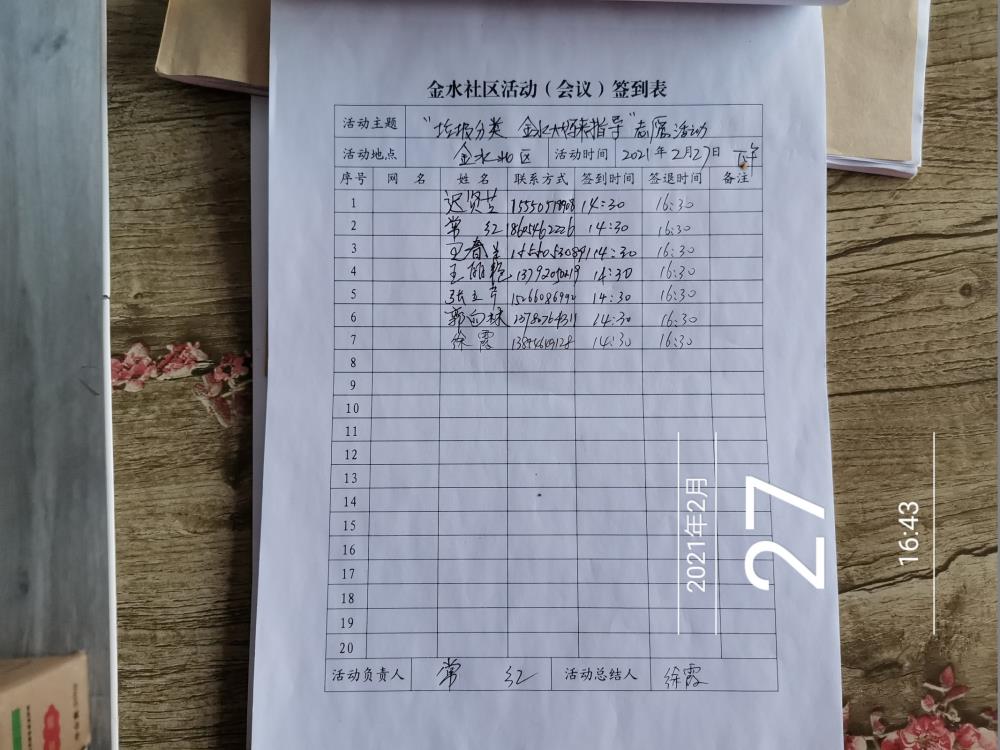 金水社区活动（会议）签到表
活动主题 "垃圾分类 金水大姨来指导"志愿活动
活动地点 金水北区 活动时间 2021年2月27日 下午
序号 网名 姓名 联系方式 签到时间 签退时间 备注
1 迟贤芝 14:30 16:30
2 常红 18605462226 14:30 16:30
3 王春兰 14:30 16:30
4 王丽艳 14:30 16:30
5 14:30 16:30
6 14:30 16:30
7 徐霞 14:30 16:30
8
9
10
11
12
13
14
15
16
17
18
19
20
活动负责人 常红 活动总结人 徐霞
2021年2月
27
16:43